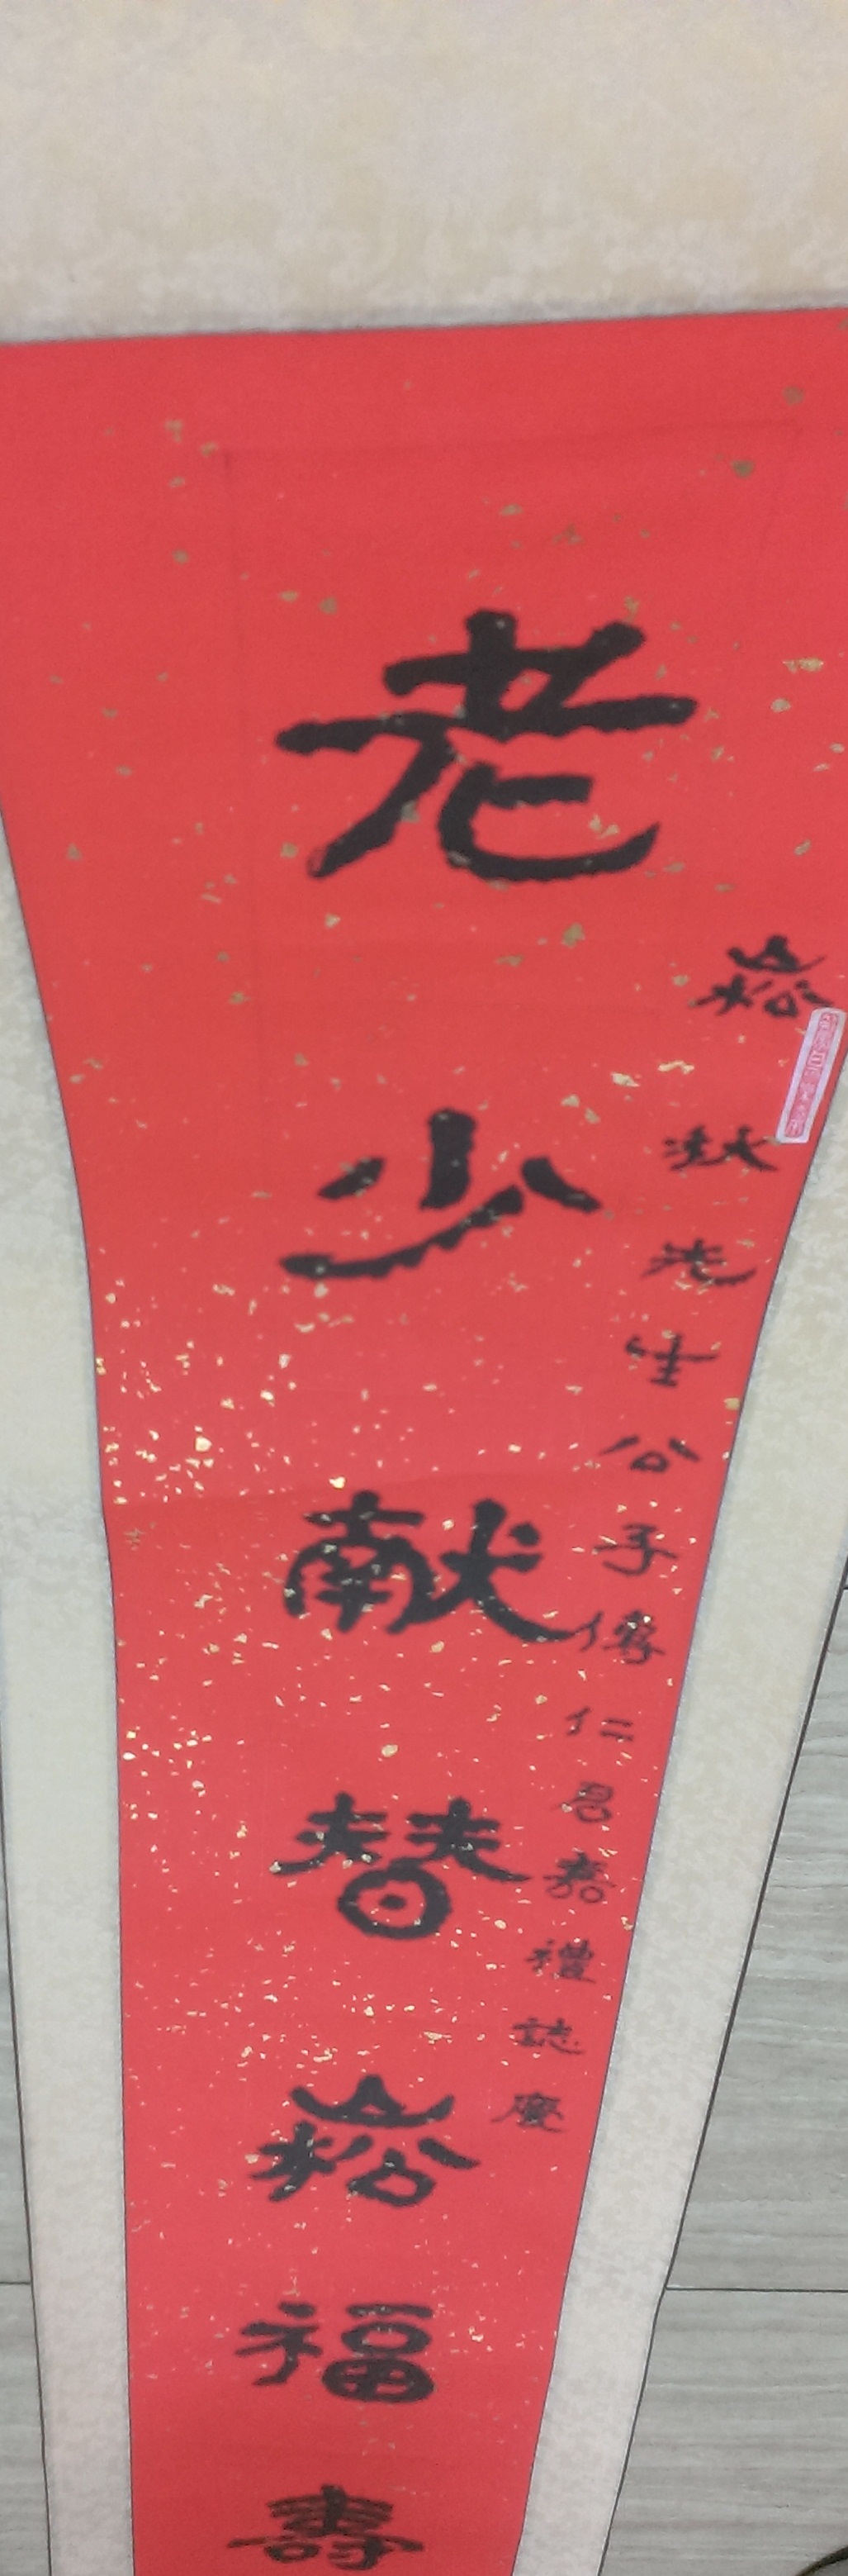 崧秋先生公子傳仁君嘉禮誌慶
老少献替崧福壽